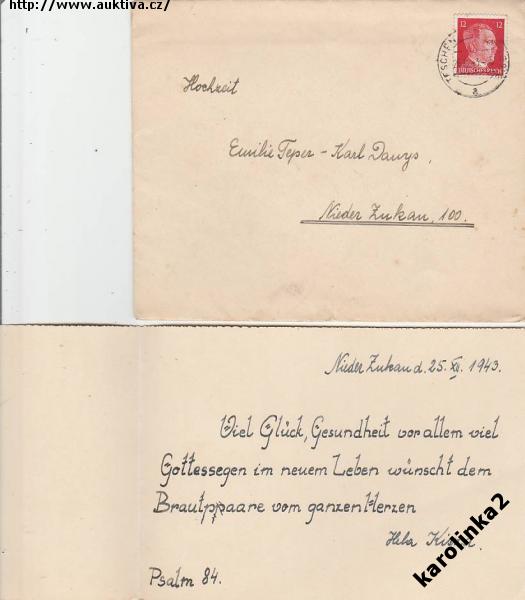 http://www.auktiva.cz/
12 12
DEUTSCHES REICH
TESCHEN
a
Hochzeit
Emilie Teper - Karl Danys,
Nieder Zukau, 100.
Nieder Zukau d. 25. XII. 1943.
Viel Glück, Gesundheit vor allem viel
Gottessegen im neuem Leben wünscht dem
Brautppaare vom ganzen Herzen
Psalm 84.
karolinka2